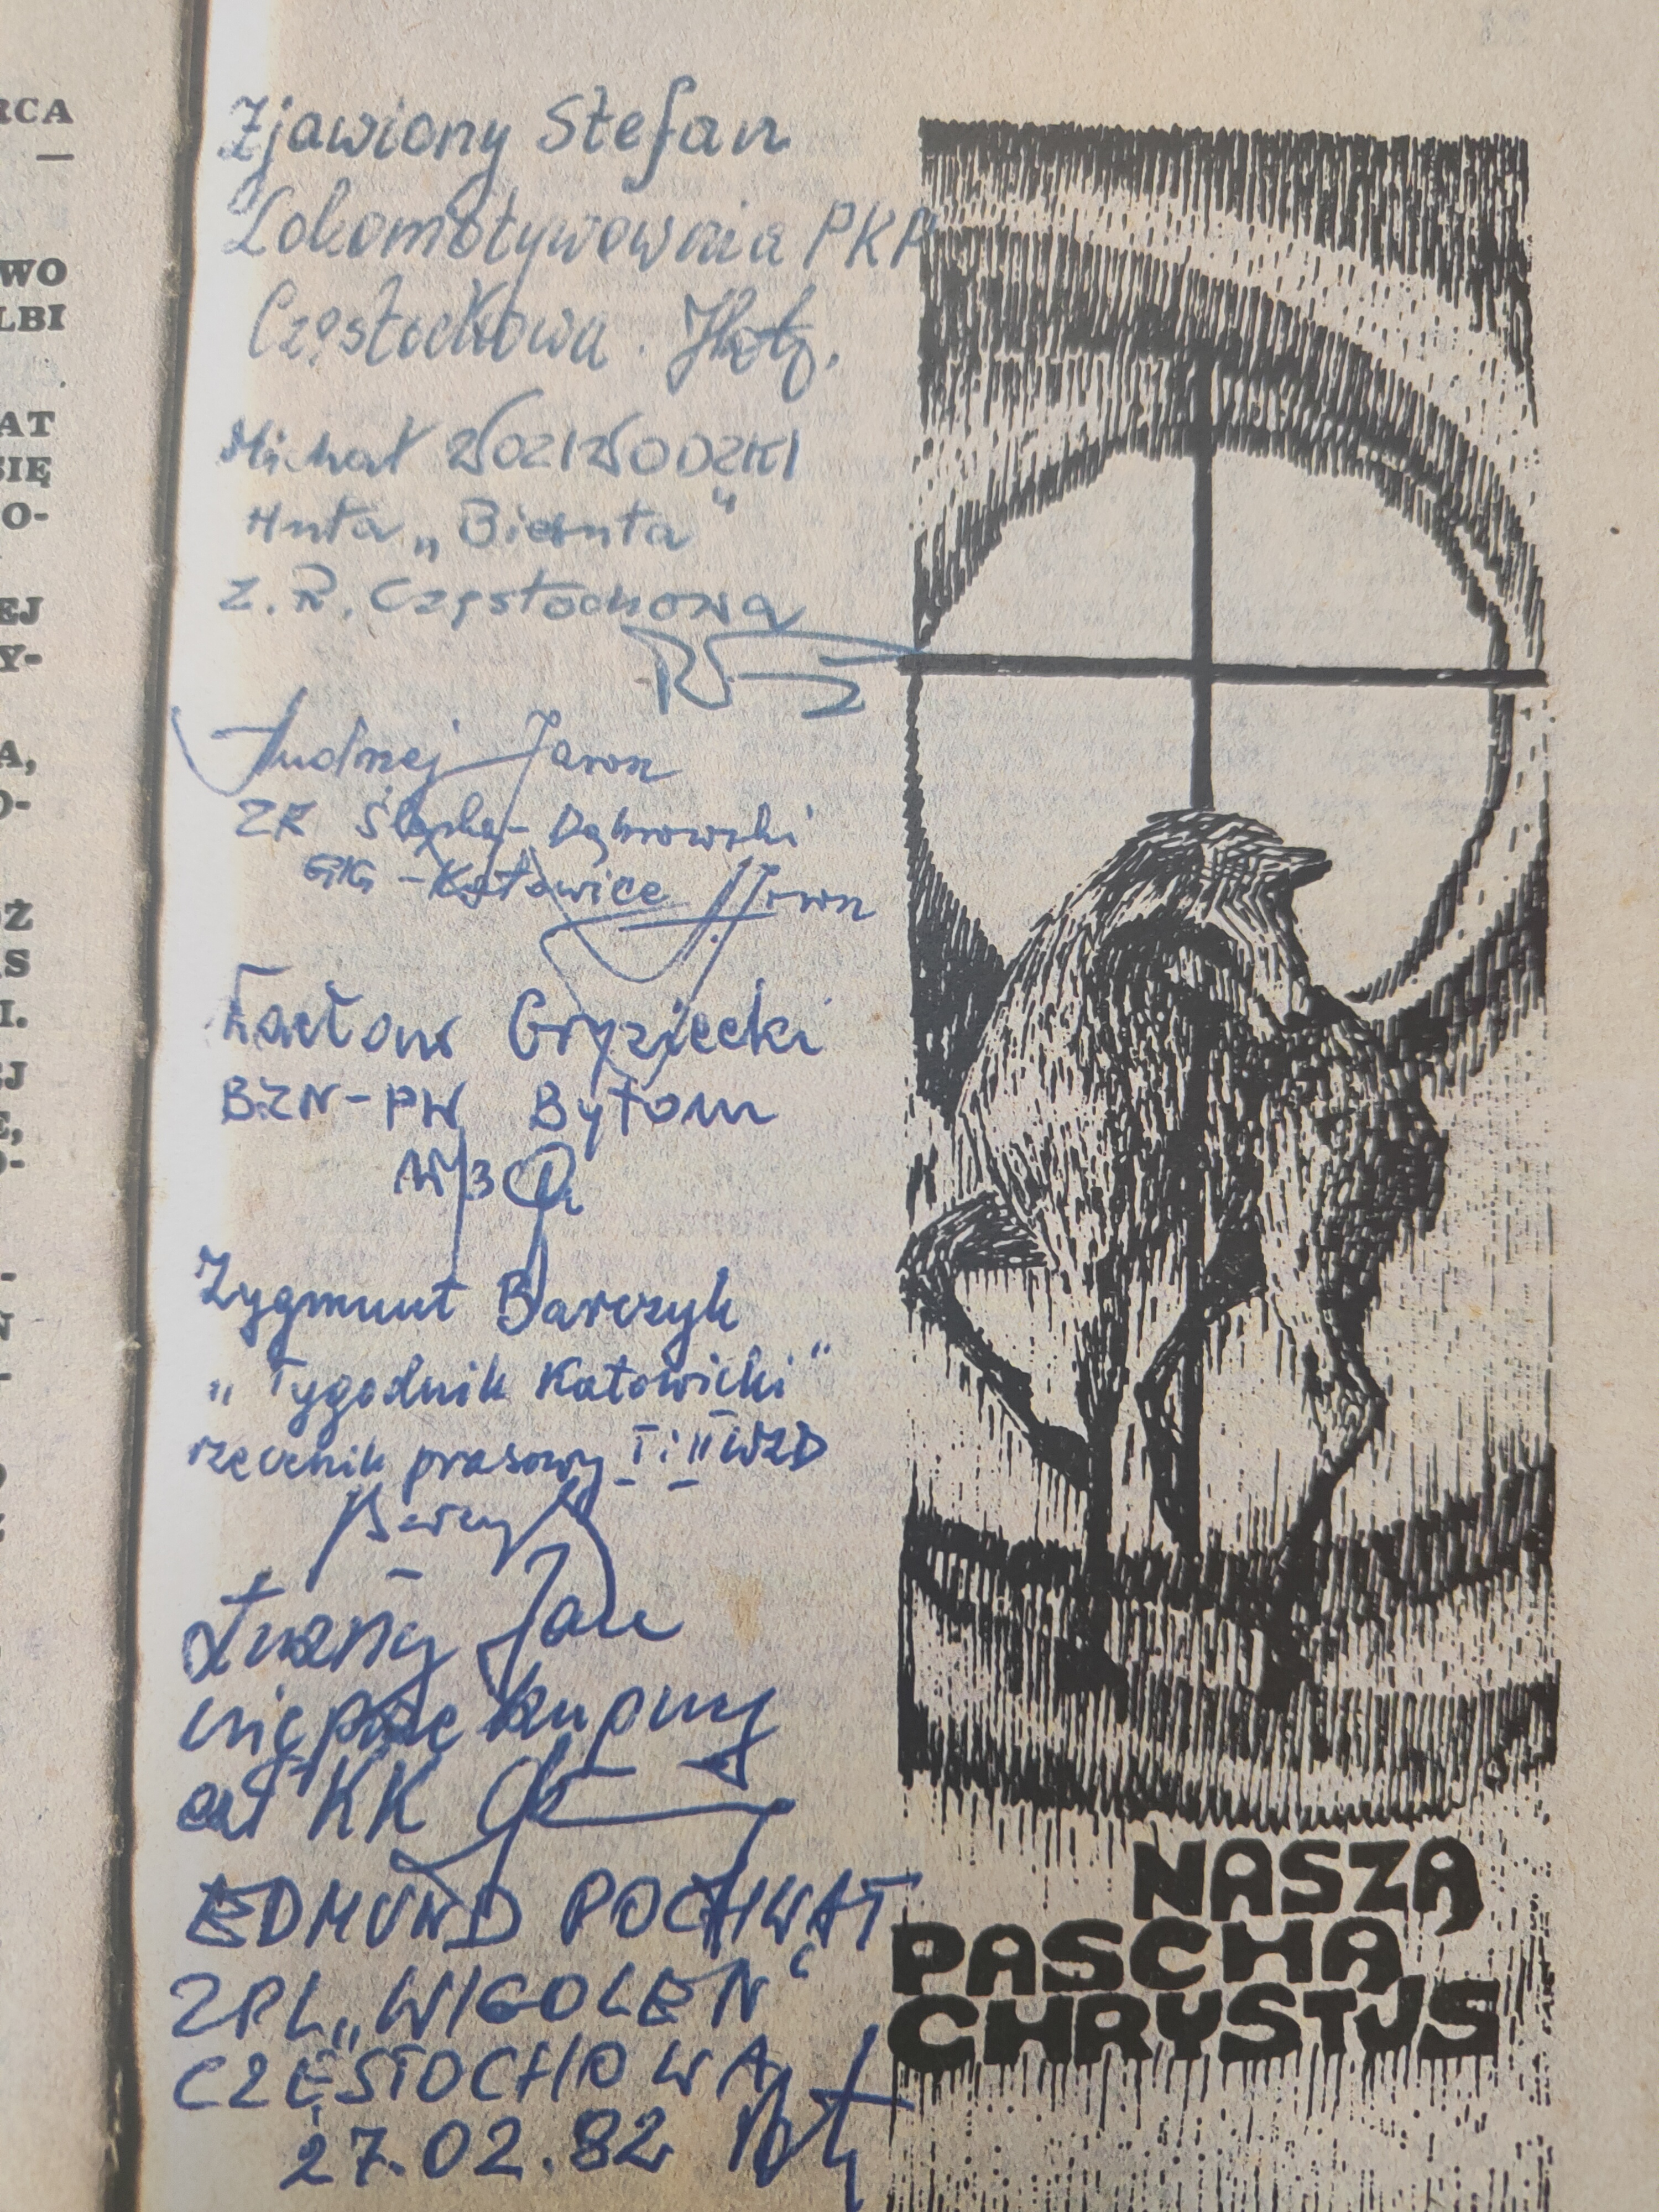 RCA
—
WO
LBI
AT
SIĘ
O-
EJ
Y-
A,
O-
Ż
AS
I.
EJ
E,
Zjawiony Stefan
Lokomotywownia PKP
Częstochowa.
Michał WOZIWODZKI
Huta „Bieruta"
Z.R. Częstochowa
Andrzej Jaron
ZR Śląsko-Dąbrowski
GIG - Katowice Jaron
Gryziecki
BZN-PW Bytom
Zygmunt Barczyk
„Tygodnik Katowicki"
rzecznik prasowy I i II WZD
Luzny Jan
nieprzekupny
czł KK
EDMUND POCHWAT
ZPL „WIGOLEN"
CZĘSTOCHOWA
27.02.82
NASZĄ
PASCHĄ
CHRYSTUS